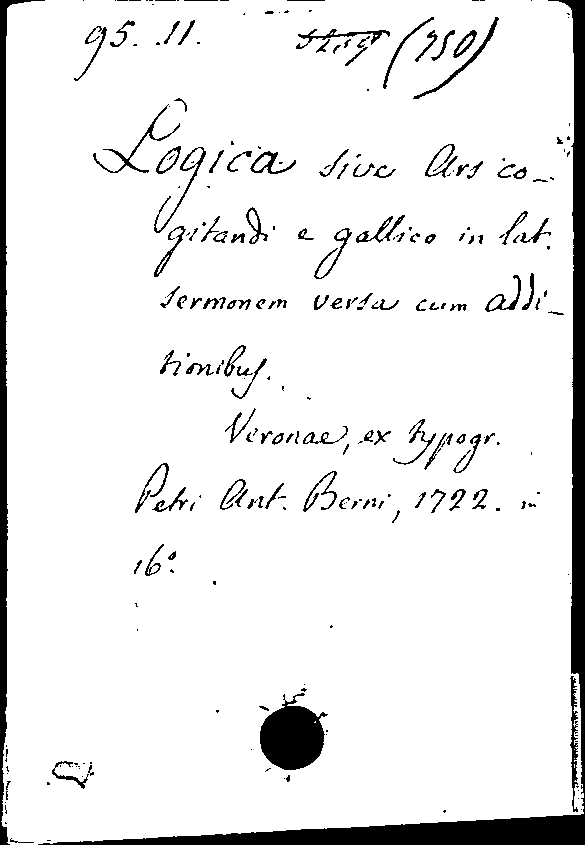 95. 11. (750)
Logica sive Ars co-
gitandi e gallico in lat.
sermonem versa cum addi-
tionibus.
Veronae, ex typogr.
Petri Ant. Berni, 1722. in
16°.